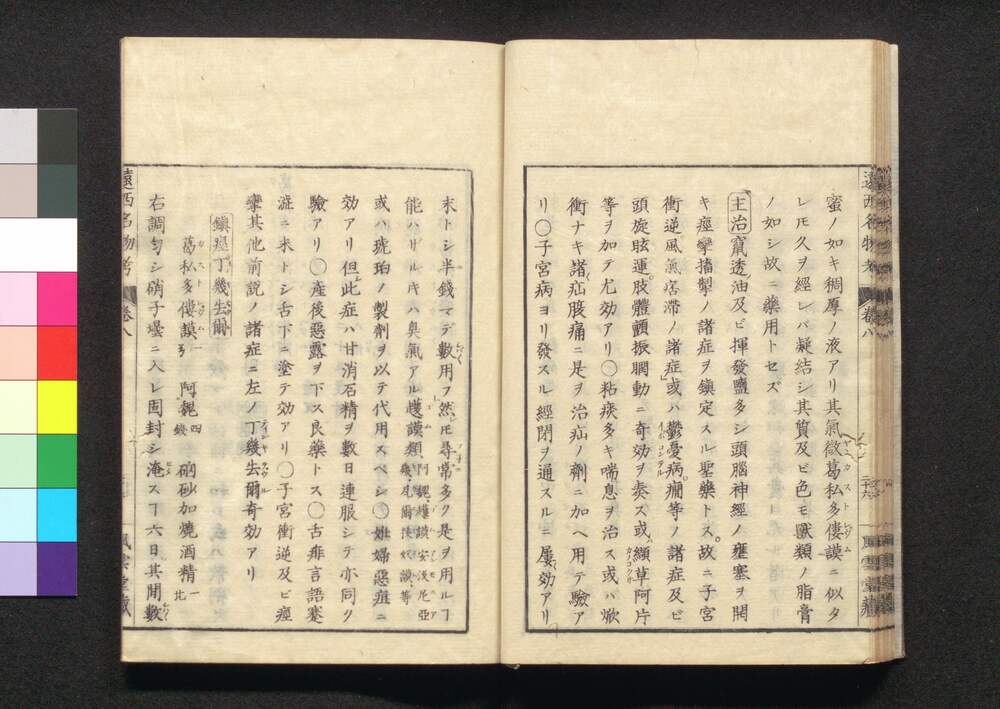 遠西名物考 巻八
蜜ノ如キ稠厚ノ液アリ其氣微葛私多僂謨ニ似タ
レモ久ヲ經レバ凝結シ其質及ビ色モ獸類ノ脂膏
ノ如シ故ニ藥用トセズ
主治 竄透油及ビ揮發鹽多シ頭腦神經ノ壅塞ヲ開
キ痙攣搐掣ノ諸症ヲ鎮定スル聖藥トス故ニ子宮
衝逆風氣痞滯ノ諸症或ハ鬱憂病癇等ノ諸症及ビ
頭旋眩運肢體顫振膶動ニ奇効ヲ奏ス或ハ纈草阿片
等ヲ加テ尤効アリ〇粘痰多キ喘息ヲ治ス或ハ焮
衝ナキ諸疝腹痛ニ是ヲ治疝ノ劑ニ加ヘ用テ驗ア
リ〇子宮病ヨリ發スル經閉ヲ通スルニ屢効アリ
二十六 風雲堂藏
末トシ半錢マデ數用フ然𪜈尋常多ク是ヲ用ルヿ
能ハサルキハ臭氣アル護謨類 阿魏 安沒尼亞 等
或ハ琥珀ノ製劑ヲ以テ代用スベシ〇妊婦惡阻ニ
効アリ但此症ハ甘消石精ヲ數日連服シテ亦同ク
驗アリ〇産後惡露ヲ下ス良藥トス〇舌痱言語蹇
澁ニ末トシ舌下ニ塗テ効アリ〇子宮衝逆及ビ痙
攣其他前説ノ諸症ニ左ノ丁幾去爾奇効アリ
鎮痙丁幾去爾
葛私多僂謨 一 阿魏 四 硇砂加燒酒精 一
右調勻シ硝子壜ニ入レ固封シ淹スヿ六日其間數
遠西名物考 巻八
風雲堂藏